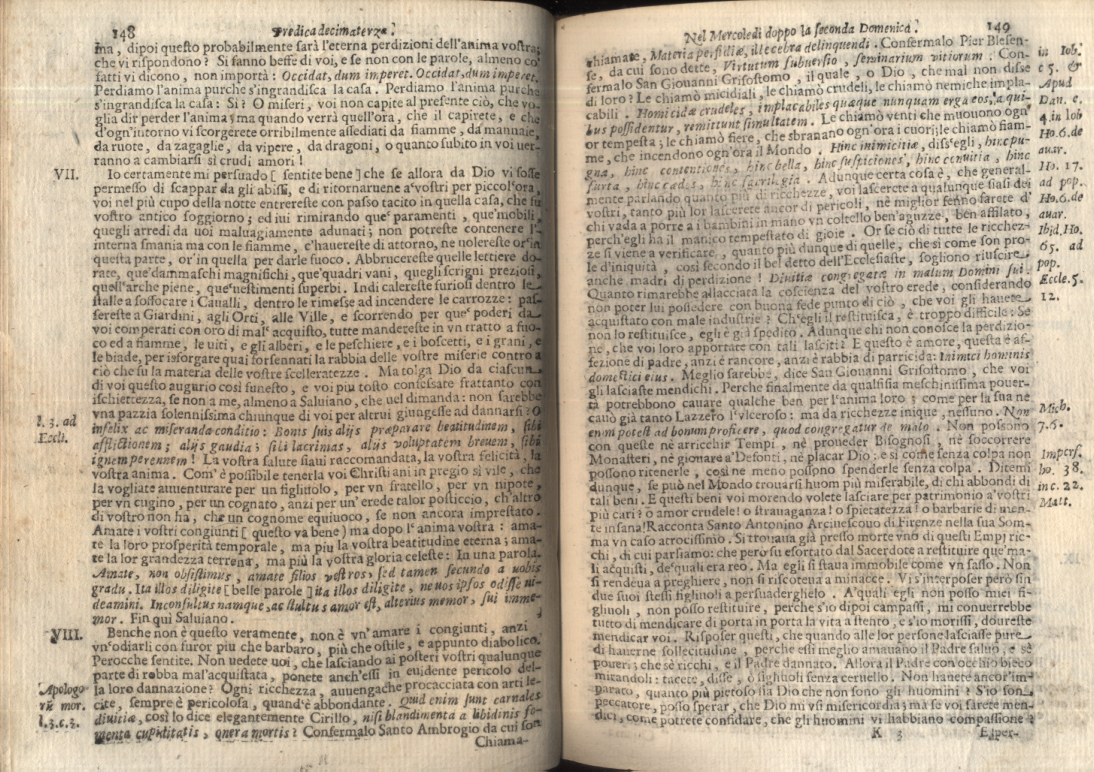 148 Predica decimaterza.
ma, dipoi questo probabilmente sarà l'eterna perdizioni dell'anima vostra;
che vi rispondono? Si fanno beffe di voi, e se non con le parole, almeno co'
fatti vi dicono, non importà: Occidat, dum imperet. Occidat, dum imperet.
Perdiamo l'anima purche s'ingrandisca la casa. Perdiamo l'anima purche
s'ingrandisca la casa: Sì? O miseri, voi non capite al presente ciò, che vo-
glia dir perder l'anima; ma quando verrà quell'ora, che il capirete, e che
d'ogn'intorno vi scorgerete orribilmente assediati da fiamme, da mannaie,
da ruote, da zagaglie, da vipere, da dragoni, o quanto subito in voi ver-
ranno a cambiarsi sì crudi amori!
VII. Io certamente mi persuado [ sentite bene ] che se allora da Dio vi fosse
permesso di scappar da gli abissi, e di ritornarvene a'vostri per piccol'ora,
voi nel più cupo della notte entrereste con passo tacito in quella casa, che fu
vostro antico soggiorno; ed iui rimirando que' paramenti, que'mobili,
quegli arredi da uoi maluagiamente adunati; non potreste contenere l'-
interna smania ma con le fiamme, c'hauereste di attorno, ne volereste or'in
questa parte, or'in quella per darle fuoco. Abbrucereste quelle lettiere do-
rate, que'dammaschi magnifichi, que'quadri vani, quegli scrigni preziosi,
quell'arche piene, que'uestimenti superbi. Indi calereste furiosi dentro le
stalle a soffocare i Caualli, dentro le rimesse ad incendere le carrozze: pas-
sereste a Giardini, agli Orti, alle Ville, e scorrendo per que' poderi da
voi comperati con oro di mal' acquisto, tutte mandereste in vn tratto a fuo-
co ed a fiamme, le uiti, e gli alberi, e le peschiere, e i boscetti, e i grani, e
le biade, per isforgare quai forsennati la rabbia delle vostre miserie contro a
ciò che fu la materia delle vostre scelleratezze. Ma tolga Dio da ciascun
di voi questo augurio così funesto, e voi piu tosto confessate frattanto con
ischiettezza, se non a me, almeno a Saluiano, che uel dimanda: non sarebbe
vna pazzia solennissima chiunque di voi per altrui giungesse ad dannarsi? O
l. 3. ad Eccli. infelix ac miseranda conditio: Bonis suis alijs præparare beatitudinem, sibi
afflictionem; alijs gaudia; sibi lacrimas, alijs voluptatem breuem, sibi
ignem perennem! La vostra salute siaui raccomandata, la vostra felicità, la
vostra anima. Com' è possibile tenerla voi Christiani in pregio sì vile, che
la vogliate auuenturare per un figliuolo, per vn fratello, per vn nipote,
per vn cugino, per un cognato, anzi per un'erede talor posticcio, ch'altro
di vostro non ha, che un cognome equiuoco, se non ancora imprestato.
Amate i vostri congiunti [ questo va bene ) ma dopo l' anima vostra: ama-
te la loro prosperità temporale, ma piu la vostra beatitudine eterna; ama-
te la lor grandezza terrena, ma più la vostra gloria celeste: In una parola.
Amate, non obsistimus, amate filios vestros, sed tamen secundo a uobis
gradu. Ita illos diligite [ belle parole ] ita illos diligite, ne uos ipsos odisse ui-
deamini. Inconsultus namque, ac stultus amor est, alterius memor, sui imme-
mor. Fin qui Saluiano.
VIII. Benche non è questo veramente, non è vn'amare i congiunti, anzi
vn'odiarli con furor piu che barbaro, più che ostile, e appunto diabolico.
Perocche sentite. Non uedete uoi, che lasciando ai posteri vostri qualunque
parte di robba mal'acquistata, ponete anch'essi in euidente pericolo del-
Apologo rū mor. l.3.c.3. la loro dannazione? Ogni ricchezza, auuengache procacciata con arti le-
cite, sempre è pericolosa, quand'è abbondante. Quid enim sunt carnales
diuitiæ, così lo dice elegantemente Cirillo, nisi blandimenta a libidinis fo-
menta cupiditatis, onera mortis? Confermalo Santo Ambrogio da cui son
Chiama-
Nel Mercoledì doppo la seconda Domenica. 149
chiamate, Materia perfidiæ, illecebra delinquendi. Confermalo Pier Blesen-
se, da cui sono dette, Virtutum subuersio, seminarium vitiorum. Con-
fermalo San Giouanni Grisostomo, il quale, o Dio, che mal non disse
di loro? Le chiamò micidiali, le chiamò crudeli, le chiamò nemiche impla-
cabili. Homicidæ crudeles, implacabiles quæque nunquam erga eos, a qui-
bus possidentur, remittunt simultatem. Le chiamò venti che muouono ogn'
or tempesta; le chiamò fiere, che sbranano ogn'ora i cuori; le chiamò fiam-
me, che incendono ogn'ora il Mondo. Hinc inimicitiæ, diss'egli, hinc pu-
gnæ, hinc contentiones, hinc bella, hinc suspiciones, hinc conuitia, hinc
furta, hinc cædes, hinc sacrilegia. Adunque certa cosa è, che general-
mente parlando quanto più di ricchezze, voi lascerete a qualunque siasi dei
vostri, tanto più lor lascerete ancor di pericoli, nè miglior senno farete d'
chi vada a porre a i bambini in mano vn coltello ben'aguzze, ben affilato,
perch'egli ha il manico tempestato di gioie. Or se ciò di tutte le ricchez-
ze si viene a verificare, quanto più dunque di quelle, che sì come son pro-
le d'iniquità, così secondo il bel detto dell'Ecclesiaste, sogliono riuscire
anche madri di perdizione! Diuitiæ congregatæ in malum Domini sui.
Quanto rimarebbe allacciata la coscienza del vostro erede, considerando
non poter lui possedere con buona fede punto di ciò, che voi gli hauete
acquistato con male industrie? Ch'egli il restituisca, è troppo difficile: Se
non lo restituisce, egli è già spedito. Adunque chi non conosce la perdizio-
ne, che voi loro apportate con tali lasciti? E questo è amore, questa è af-
fezione di padre, anzi è rancore, anzi è rabbia di parricida: Inimici hominis
domestici eius. Meglio sarebbe, dice San Giouanni Grisostomo, che voi
gli lasciaste mendichi. Perche finalmente da qualsisia meschinissima pouer-
tà potrebbono cauare qualche ben per l'anima loro; come per la sua ne
cauò già tanto Lazzero l'vlceroso: ma da ricchezze inique, nessuno. Non
enim potest ad bonum proficere, quod congregatur de malo. Non possono
con queste nè arricchir Tempi, nè proueder Bisognosi, nè soccorrere
Monasteri, nè giouare a'Defonti, nè placar Dio: e sì come senza colpa non
possono ritenerle, così ne meno posspno spenderle senza colpa. Ditemi
dunque, se può nel Mondo trouarsi huom più miserabile, di chi abbondi di
tali beni. E questi beni voi morendo volete lasciare per patrimonio a'vostri
più cari? o amor crudele! o strauaganza! o spietatezza! o barbarie di men-
te insana! Racconta Santo Antonino Arciuescouo di Firenze nella sua Som-
ma vn caso atrocissimo. Si trouaua già presso morte vno di questi Empj ric-
chi, di cui parliamo: che però fu esortato dal Sacerdote a restituire que'ma-
li acquisti, de'quali era reo. Ma egli si staua immobile come vn sasso. Non
si rendeua a preghiere, non si riscoteua a minacce. Vi s'interposer però fin
due suoi stessi figliuoli a persuaderghelo. A'quali egli non posso miei fi-
gliuoli, non posso restituire, perche s'io dipoi campassi, mi conuerrebbe
tutto di mendicare di porta in porta la vita a stento, e s'io morissi, doureste
mendicar voi. Risposer questi, che quando alle lor persone lasciasse pure
di hauerne sollecitudine, perche essi meglio amauano il Padre saluo, e sè
poueri; che sè ricchi, e il Padre dannato. Allora il Padre con occhio bieco
mirandoli: tacete, disse, o figliuoli senza ceruello. Non hauete ancor'im-
parato, quanto più pietoso sia Dio che non sono gli huomini? S'io son
peccatore, posso sperar, che Dio mi vsi misericordia; mà se voi sarete men-
dici, come potrete confidare, che gli huomini vi habbiano compassione?
K 3 Esper-
in Iob.
c 5. &
Apud
Dan. c.
4. in Iob
Ho. 6. de
auar.
Ho. 17.
ad pop.
Ho. 6. de
auar.
Ibid. Ho.
65. ad
pop.
Eccle. 5.
12.
Mich.
7. 6.
Imperf.
ho. 38.
in c. 22.
Matt.